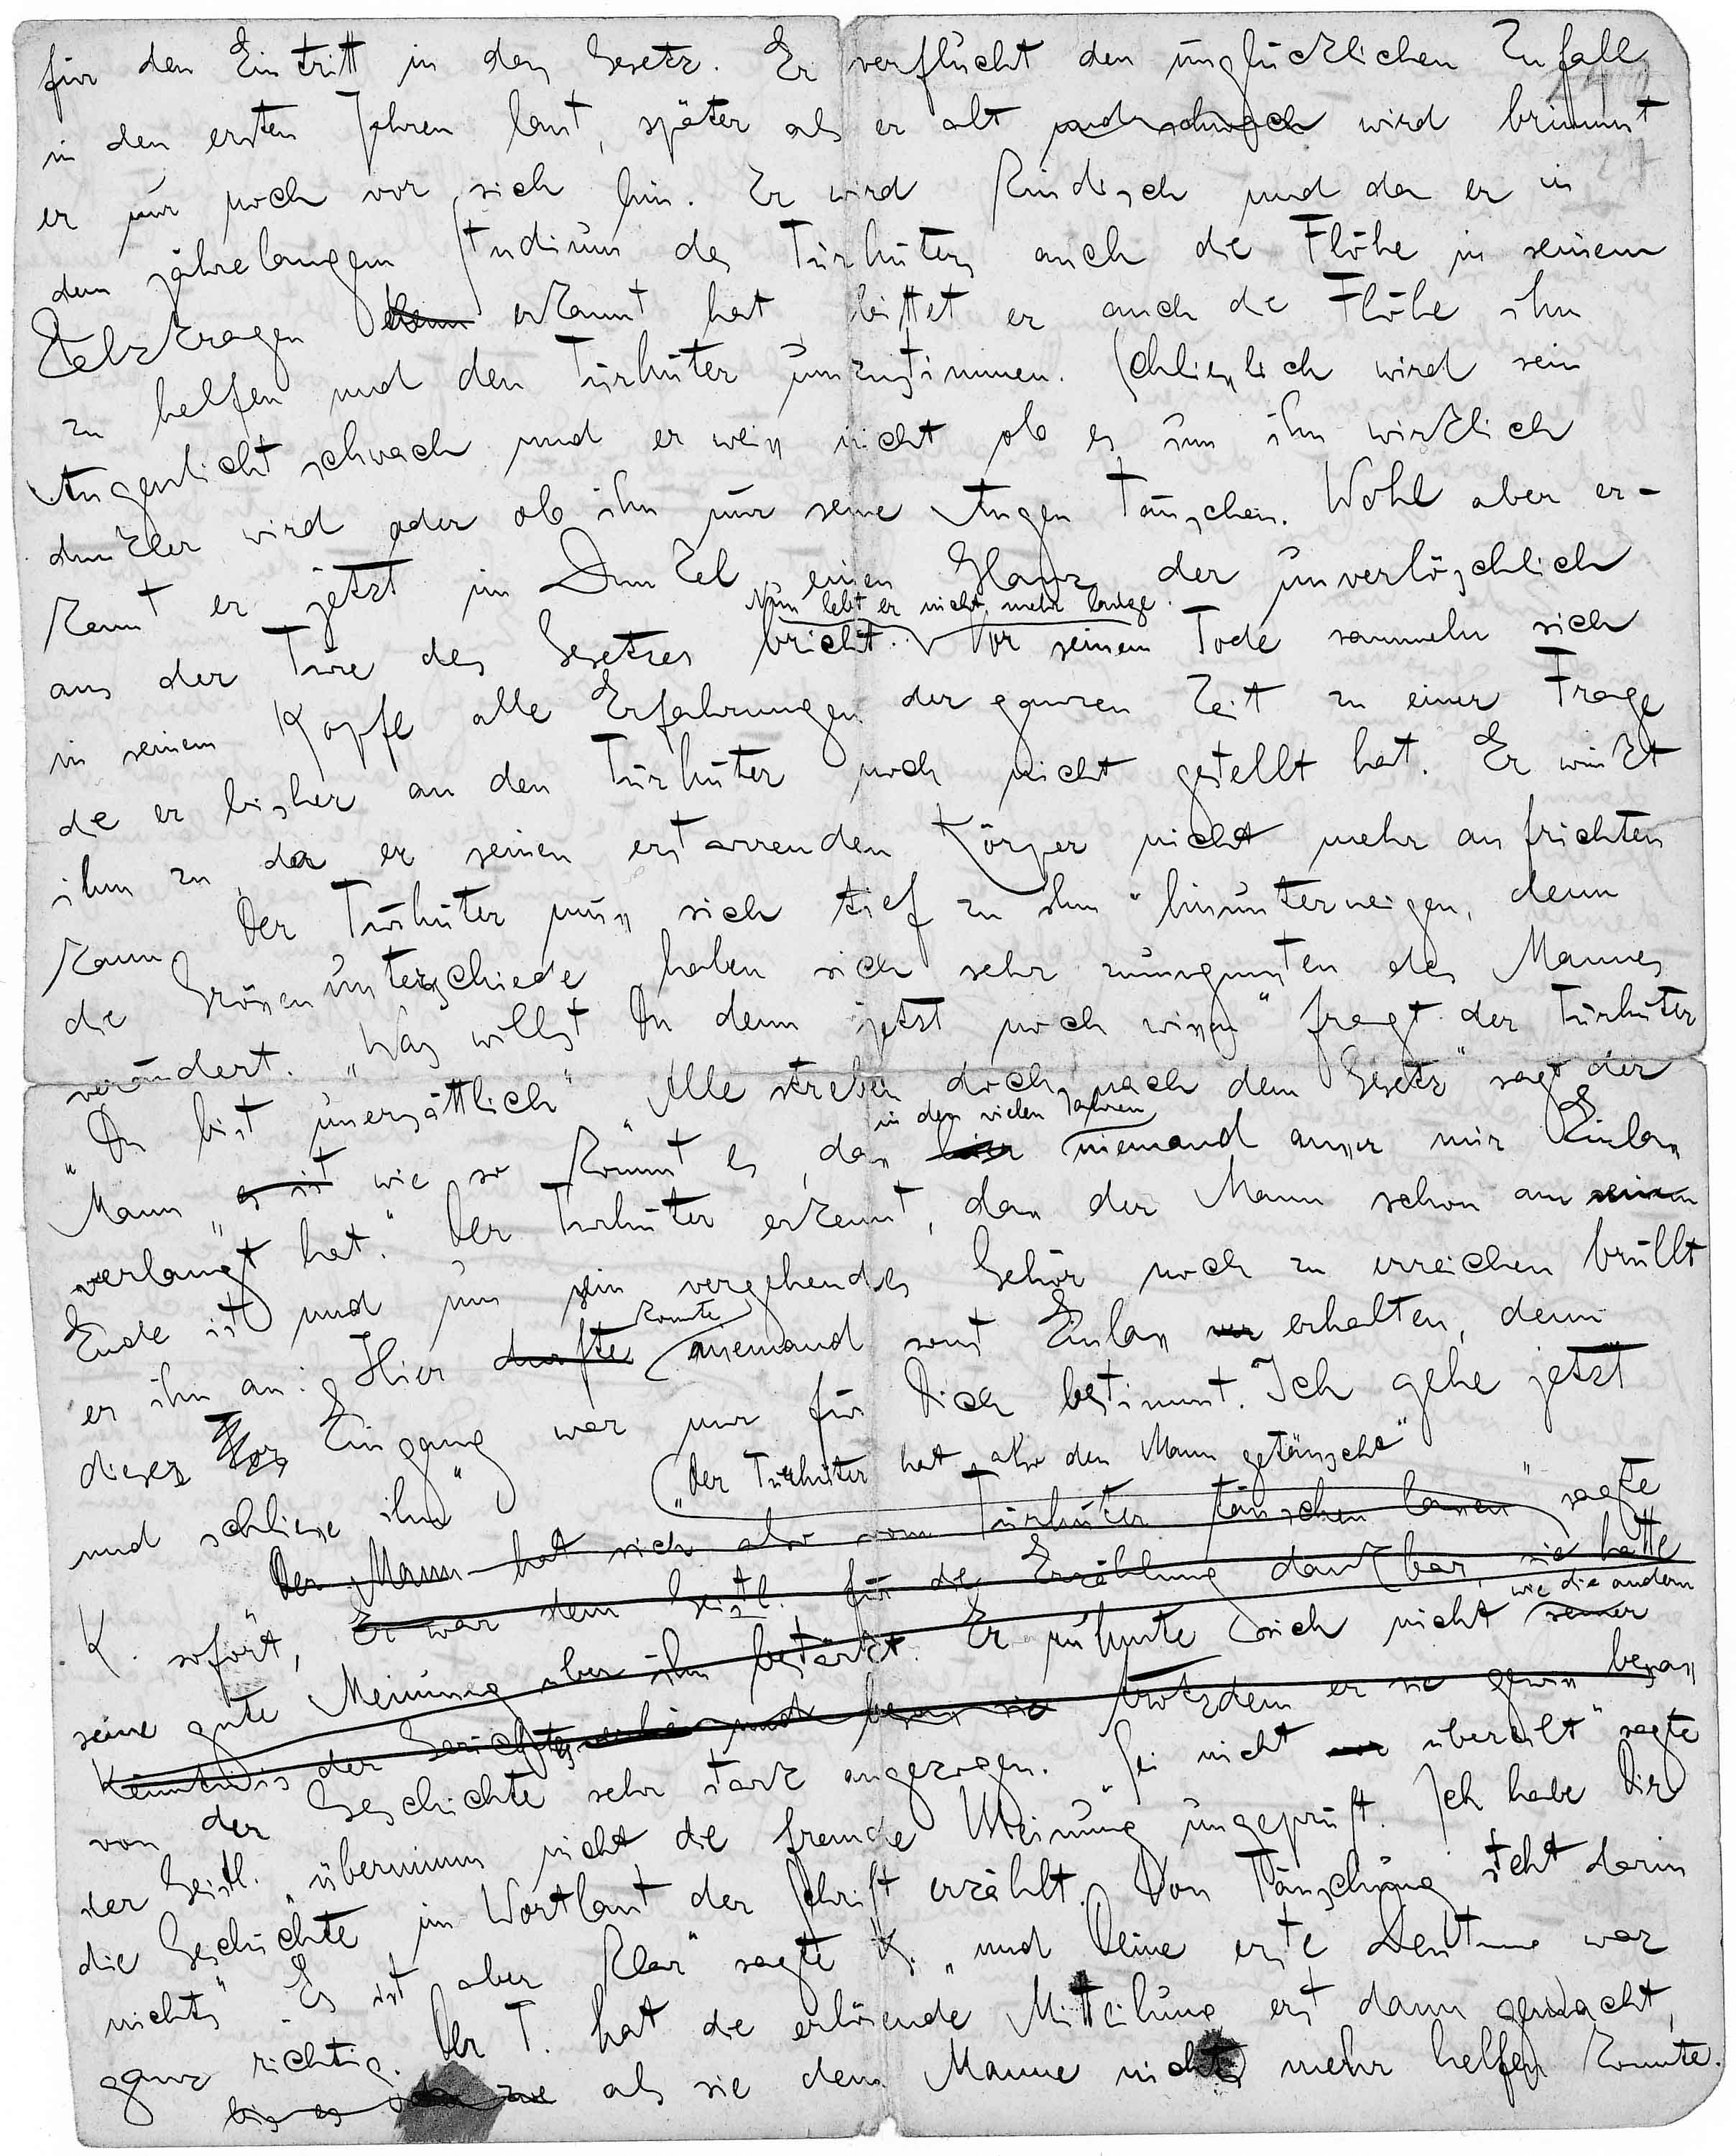 für den Eintritt in das Gesetz. Er verflucht den unglücklichen Zufall
in den ersten Jahren laut, später als er alt und schwach wird brummt
er nur noch vor sich hin. Er wird kindisch und da er in
dem jahrelangen Studium des Türhüters auch die Flöhe in seinem
Pelzkragen erkannt hat bittet er auch die Flöhe ihm
zu helfen und den Türhüter umzustimmen. Schliesslich wird sein
Augenlicht schwach und er weiss nicht ob es um ihn wirklich
dunkler wird oder ob ihn nur seine Augen täuschen. Wohl aber er-
kennt er jetzt im Dunkel einen Glanz, der unverlöschlich
Nun lebt er nicht mehr lange.
aus der Türe des Gesetzes bricht. Vor seinem Tode sammeln sich
in seinem Kopfe alle Erfahrungen der ganzen Zeit zu einer Frage
die er bisher an den Türhüter noch nicht gestellt hat. Er winkt
ihm zu, da er seinen erstarrenden Körper nicht mehr aufrichten
kann. Der Türhüter muss sich tief zu ihm hinunterneigen, denn
die Grössenunterschiede haben sich sehr zuungunsten des Mannes
verändert. „Was willst Du denn jetzt noch wissen" fragt der Türhüter
„Du bist unersättlich" „Alle streben doch nach dem Gesetz" sagt der
in den vielen Jahren
Mann „es ist wie so kommt es, dass hier niemand ausser mir Einlass
verlangt hat." Der Türhüter erkennt, dass der Mann schon am seinem
Ende ist und um sein vergehendes Gehör noch zu erreichen brüllt
konnte
er ihn an: Hier durfte niemand sonst Einlass erhalten, denn
dieser Eingang war nur für Dich bestimmt. Ich gehe jetzt
und schliesse ihn"
„Der Türhüter hat also den Mann getäuscht"
Der Mann hat sich also vom Türhüter täuschen lassen" sagte
K. sofort, Er war dem Geistl. für die Erzählung dankbar, sie hatte
wie die andern
seine gute Meinung über ihn bestärkt. Er rühmte sich nicht seiner
Kenntnis der Gerichtes und trotzdem er sie gewiss besass
von der Geschichte sehr stark angezogen. „Sei nicht übereilt" sagte
der Geistl. „übernimm nicht die fremde Meinung ungeprüft. Ich habe Dir
die Geschichte im Wortlaut der Schrift erzählt. Von Täuschung steht darin
nichts" „Es ist aber klar" sagte K. „und Deine erste Deutung war
ganz richtig. Der T. hat die erlösende Mitteilung erst dann gemacht,
als sie dem Manne nicht mehr helfen konnte.